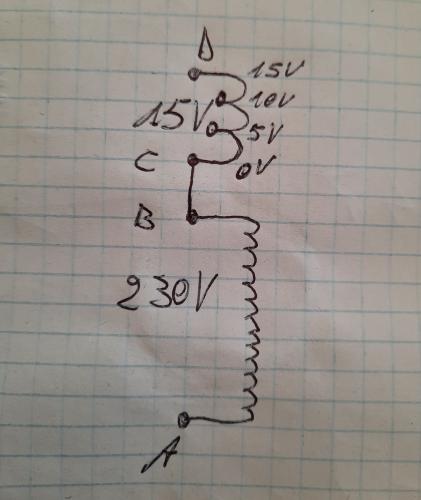 D
15V
10V
15V
5V
C
0V
B
230V
A